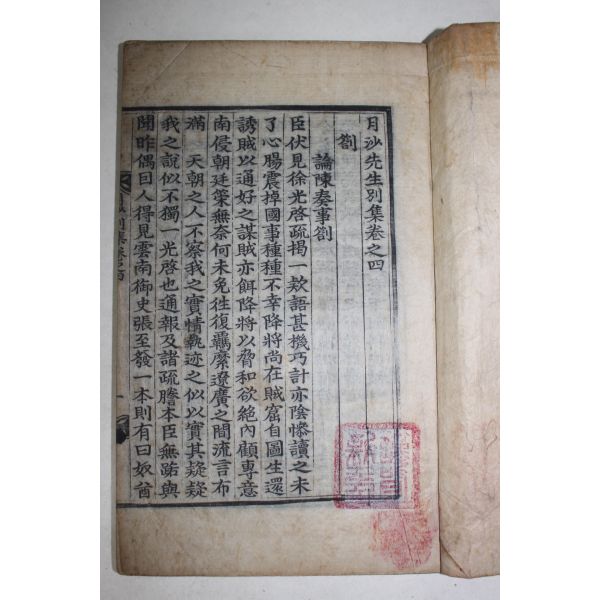 月沙先生別集卷之四
劄
論陳奏事劄
臣伏見徐光啓疏揭一欵語甚機巧計亦陰慘讀之未
了心腸震掉國事種種不幸降將尚在賊窟自圖生還
誘賊以通好之謀賊亦餌降將以脅和欲絶內顧專意
南侵朝廷策無奈何未免徃復羈縻遼廣之間流言布
滿 天朝之人不察我之實情執迹之似以實其疑疑
我之說似不獨一光啓也通報及諸疏謄本臣無路與
聞昨偶曰人得見雲南御史張至發一本則有曰奴酋